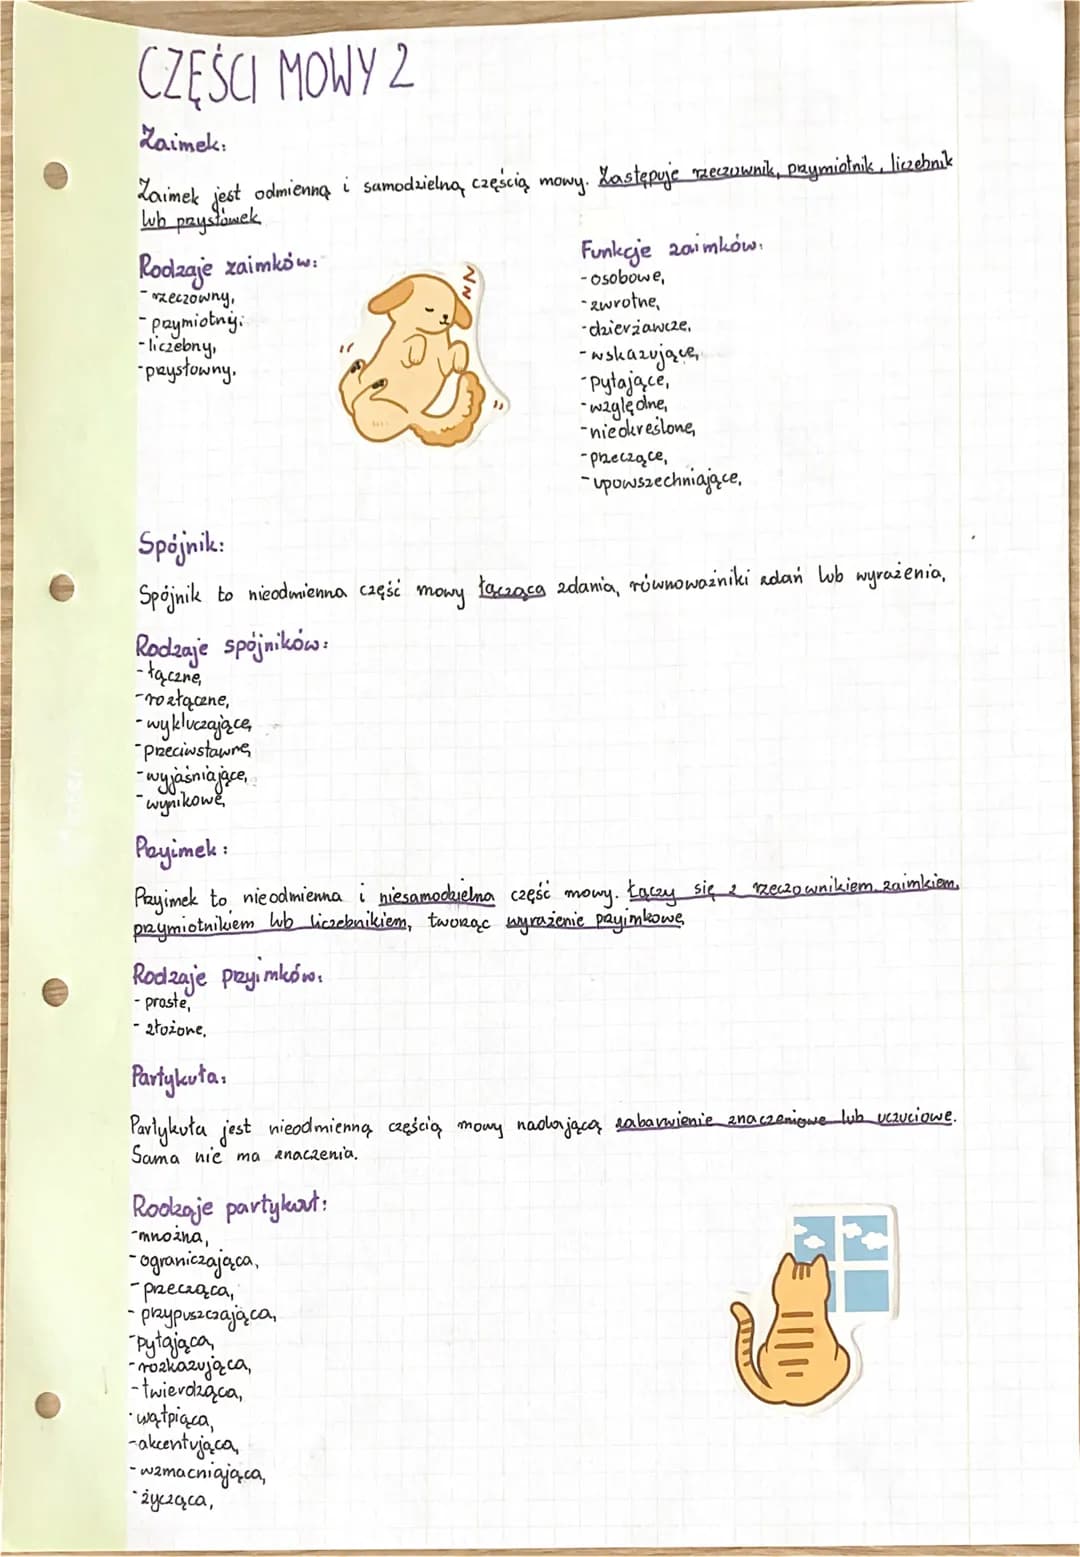 CZĘŚCI MOWY 2
Zaimek:
Zaimek jest odmienną i samodzielną częścią mowy. Zastępuje rzeczownik, przymiotnik, liczebnik
lub przysłówek
Rodzaje zaimków:
- rzeczowny,
- przymiotny,
- liczebny,
- przysłowny.
zz
Funkcje zaimków:
- osobowe,
- zwrotne,
- dzierżawcze,
- wskazujące,
- pytające,
- względne,
- nieokreślone,
- przeczące,
- upowszechniające,
Spójnik:
Spójnik to nieodmienna część mowy łącząca zdania, równoważniki zdań lub wyrażenia,
Rodzaje spójników:
- łączne,
- rozłączne,
- wykluczające,
- przeciwstawne,
- wyjaśniające,
- wynikowe,
Przyimek:
Przyimek to nieodmienna i niesamodzielna część mowy. Łączy się z rzeczownikiem, zaimkiem,
przymiotnikiem lub liczebnikiem, tworząc wyrażenie przyimkowe.
Rodzaje przyimków:
- proste,
- złożone,
Partykuła:
Partykuła jest nieodmienną częścią mowy nadającą zabarwienie znaczeniowe lub uczuciowe.
Sama nie ma znaczenia.
Rodzaje partykuł:
- mnożna,
- ograniczająca,
- przecząca,
- przypuszczająca,
- pytająca,
- rozkazująca,
- twierdząca,
- wątpiąca,
- akcentująca,
- wzmacniająca,
- życząca,